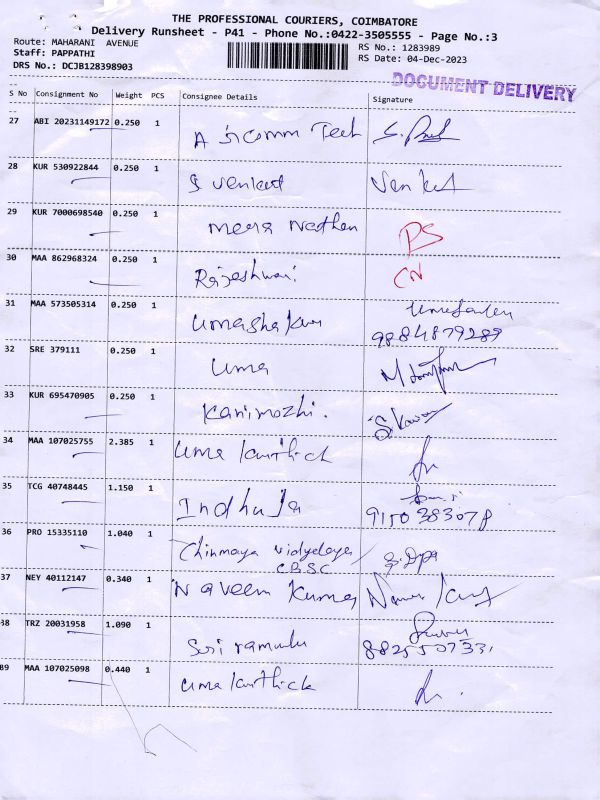 THE PROFESSIONAL COURIERS, COIMBATORE
Delivery Runsheet - P41 - Phone No.:0422-3505555 - Page No.:3
Route: MAHARANI AVENUE
Staff: PAPPATHI
DRS No.: DCJB128398903
RS No.: 1283989
RS Date: 04-Dec-2023
DOCUMENT DELIVERY
S No Consignment No Weight PCS Consignee Details Signature
27 ABI 20231149172 0.250 1 A
28 KUR 530922844 0.250 1 S Venkat Venkat
29 KUR 7000698540 0.250 1 Meera Nathan PS
30 MAA 862968324 0.250 1 Rajeshwari CN
31 MAA 573505314 0.250 1
9884879289
32 SRE 379111 0.250 1 Uma
33 KUR 695470905 0.250 1 Kanimozhi.
34 MAA 107025755 2.385 1 Uma Karthick
35 TCG 40748445 1.150 1 Indhuja
9150383078
36 PRO 15335110 1.040 1 Chinmaya Vidyalaya
CBSC
37 NEY 40112147 0.340 1 Naveen Kumar
38 TRZ 20031958 1.090 1 Sri ramulu
8825507331
39 MAA 107025098 0.440 1 Uma Karthick